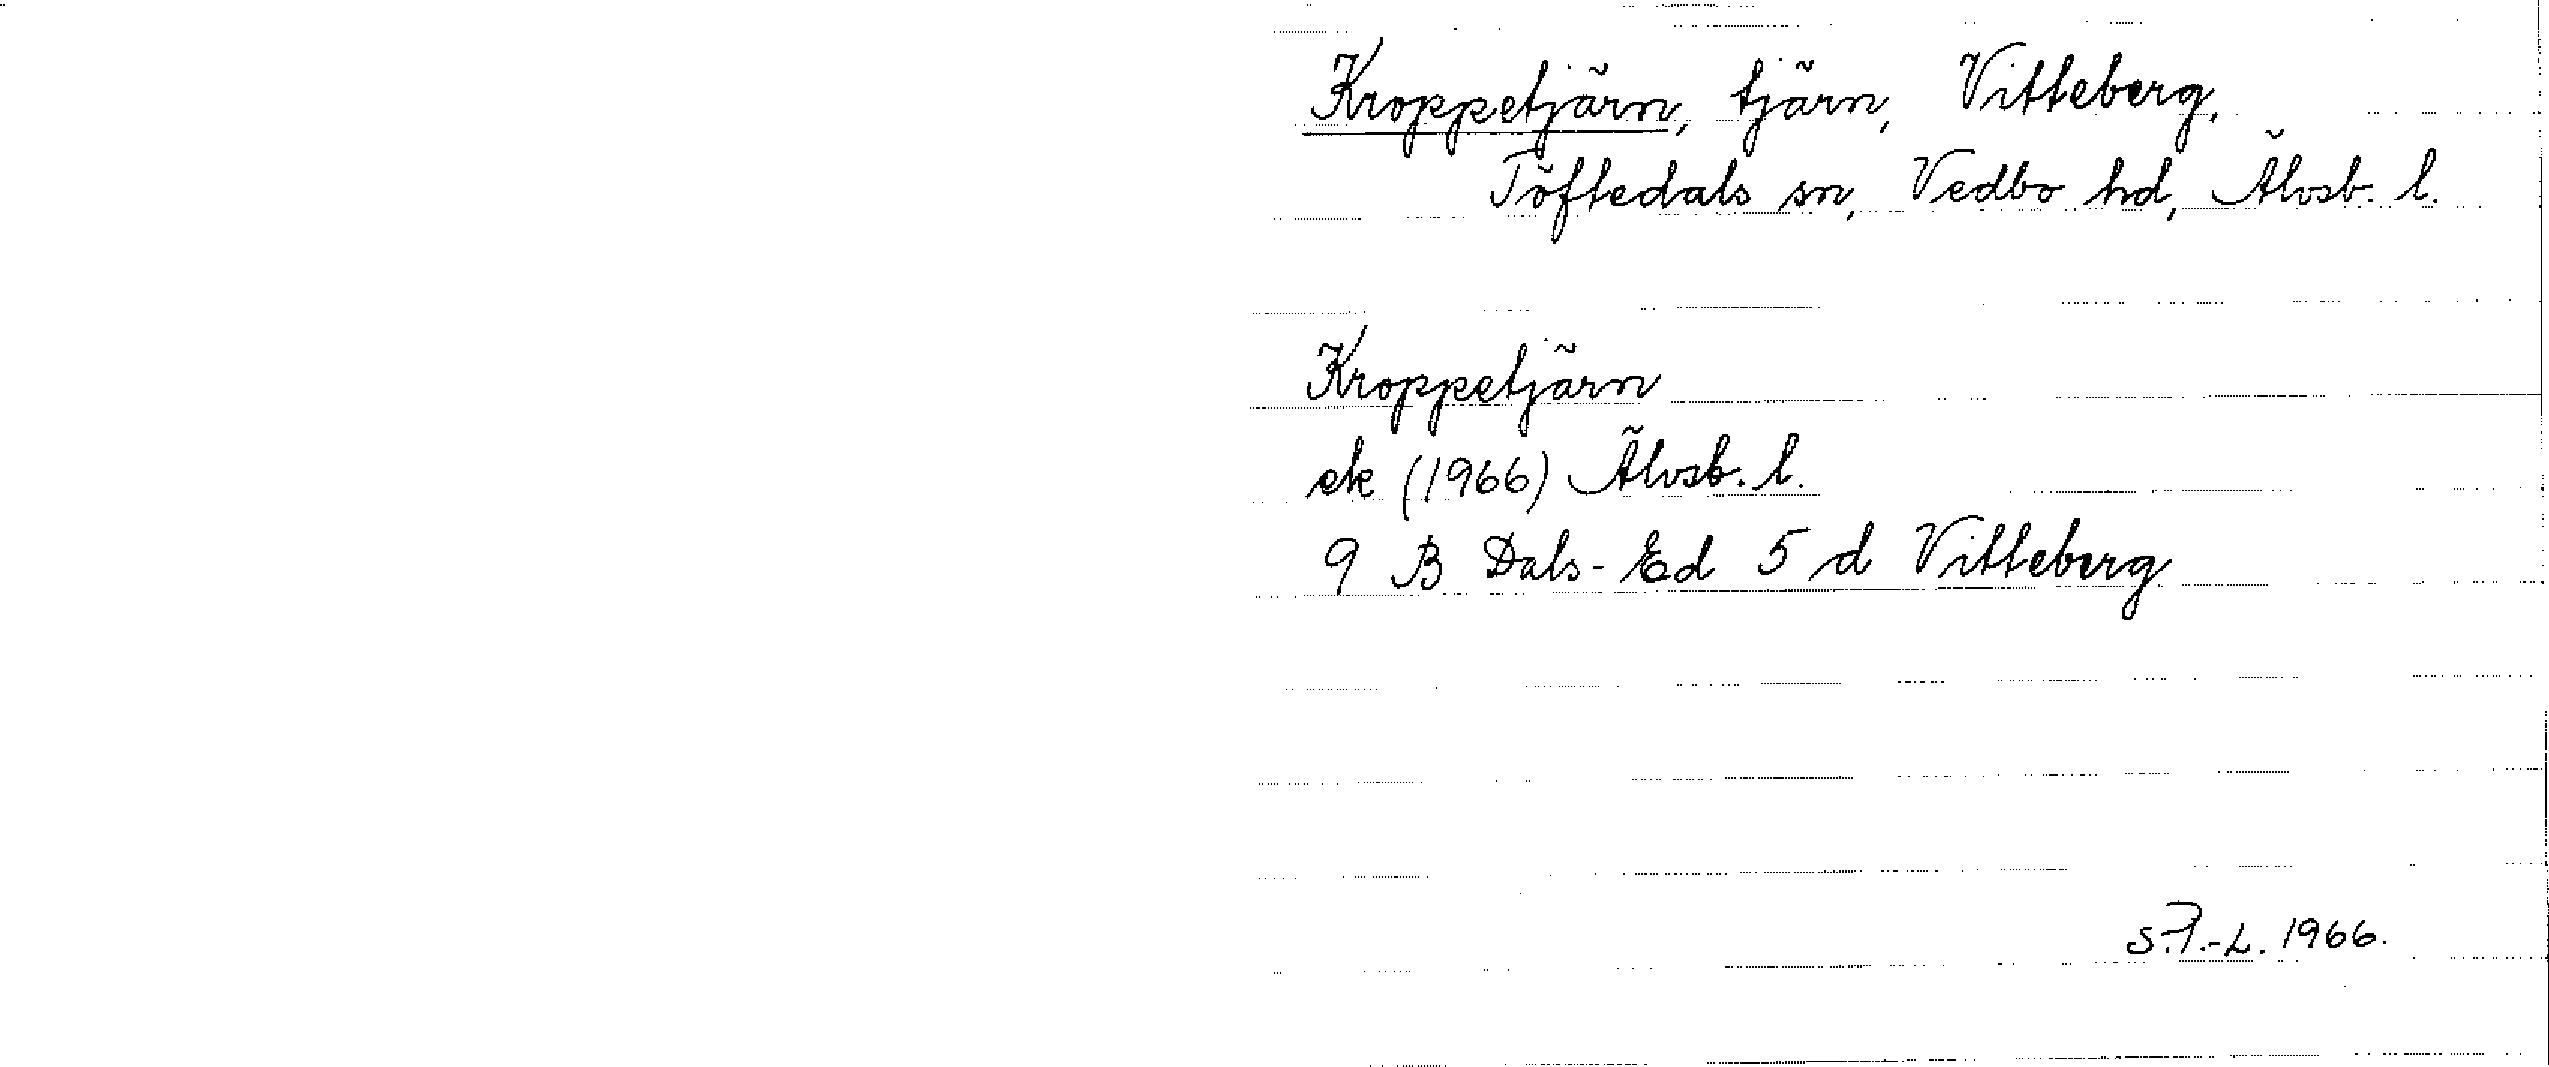 Kroppetjärn, tjärn, Vitteberg,
Töftedals sn, Vedbo hd, Älvsb. l.
Kroppetjärn
ek (1966) Älvsb. l.
9 B Dals-Ed 5 d Vitteberg
1966.